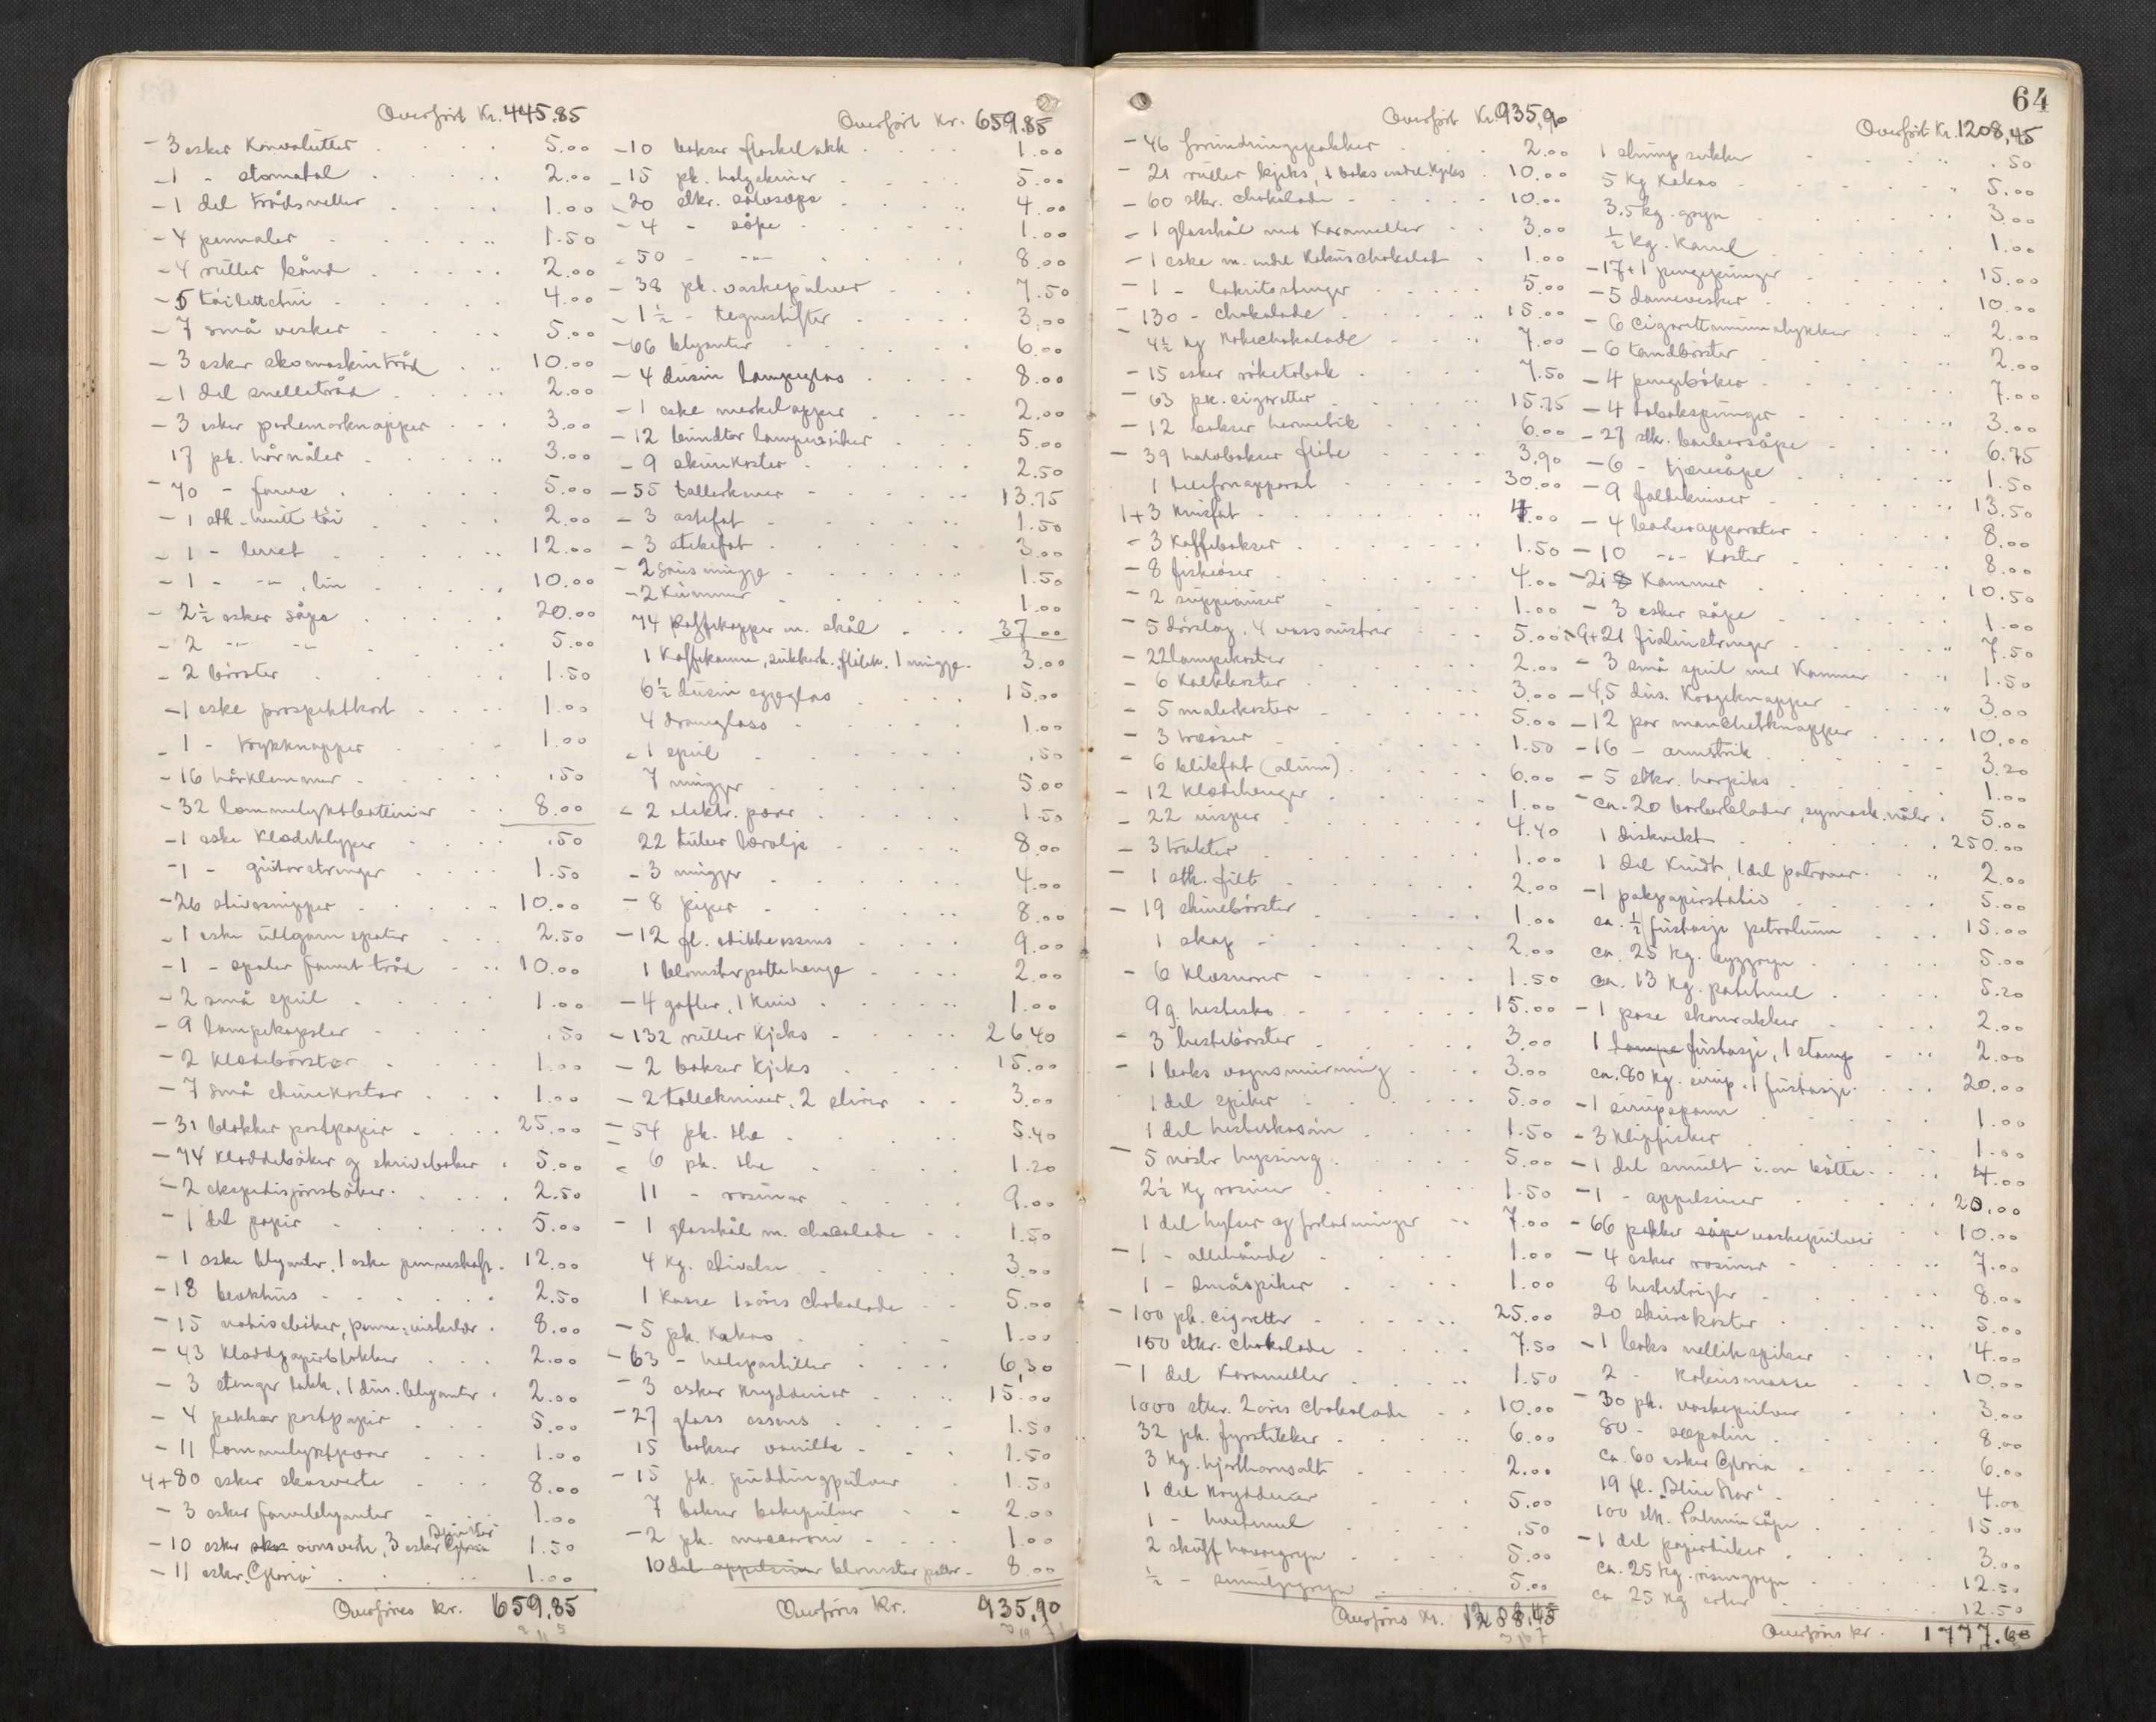 Overført Kr. 445.85
- 3 esker Konvolutter 5.00
- 1 - stomatol 2.00
- 1 del trådsneller 1.00
- 4 pennaler 1.50
- 4 ruller bånd 2.00
- 5 toilettetui 4.00
- 7 små vesker 5.00
- 3 esker skomaskintråd 10.00
- 1 del snelletråd 2.00
- 3 esker perlemorknapper 3.00
17 pk. hårnåler 3.00
- 70 - farve 5.00
- 1 stk. hvitt tøi 2.00
- 1 - lerret 12.00
- 1 - -"- , lin 10.00
- 2½ esker såpe 20.00
- 2 -"- -"- 5.00
- 2 børster 1.50
- 1 eske prospektkort 1.00
- 1 - trykknapper 1.00
- 16 hårklemmer .50
- 32 lommelyktbatterier 8.00
- 1 eske Klædeklyper .50
- 1 - guitarstrenger 1.50
- 26 stivesnipper 10.00
- 1 eske ullgarn spoler 2.50
- 1 - spoler farvet tråd 10.00
- 2 små speil 1.00
- 9 lampekapsler .50
- 2 Klædebørster 1.00
- 7 små skurekoster 1.00
- 31 blokker postpapir 25.00
- 74 Kladdebøker og skrivebøker 5.00
- 2 ekspedisjonsbøker 2.50
- 1 del papir 5.00
- 1 eske blyanter, 1 eske penneskaft 12.00
- 18 blekhus 2.50
- 15 notisbøker, penne, viskelær 8.00
- 43 Kladdpapirblokker 2.00
- 3 stenger lakk, 1 dus. blyanter 2.00
- 4 pakker postpapir 5.00
- 11 lommelyktpærer 1.00
4+80 esker skosverte 8.00
- 3 esker farveblyanter 1.00
- 10 esker ovnsverte, 3 esker Gloria 1.50
- 11 esker "Gloria" 1.00
Overføres Kr. 659.85
Overført Kr. 659.85
- 10 bokser flaskelakk 1.00
- 15 pk. holzskruer 5.00
- 20 stkr. 4.00
- 4 - såpe 1.00
- 50 - -"- 8.00
- 38 pk. vaskepulver 7.50
- 1½ - tegnestifter 3.00
- 66 blyanter 6.00
- 4 dusin lampeglas 8.00
- 1 eske merkelapper 2.00
- 12 bundter lampeveker 5.00
- 9 skurekoster 2.50
- 55 tallerkener 13.75
- 3 asjefat 1.50
- 3 stekefat 3.00
- 2 sausmugge 1.50
- 2 Kummer 1.00
74 Kaffekopper m. skål 37.00
1 Kaffekanne, sukkerk. fløtek. 1 mugge 3.00
6½ dusin eggeglas 15.00
4 dramglass 1.00
- 1 speil .50
7 mugger 5.00
- 2 elektr. pærer 1.50
22 tuber lærolje 8.00
- 3 mugger 4.00
- 8 piper 8.00
- 12 fl. eddikessens 9.00
1 blomsterpottehenge 2.00
- 4 gafler, 1 Kniv 1.00
- 132 ruller Kjeks 26.40
- 2 bokser Kjeks 15.00
- 2 tollekniver, 2 slirer 3.00
- 54 pk. the 5.40
- 6 pk. the 1.20
11 - rosiner 9.00
- 1 glasskål m. chocolade 1.50
4 Kg. stivelse 3.00
1 Kasse 1 øres chokolade 5.00
- 5 pk. Kakao 1.00
- 63 - halspastiller 6,30
- 3 esker Krydderier 15.00
- 27 glass essens 1.50
15 bokser vanilie 1.50
- 15 pk. puddingpulver 1.50
7 bokser bakepulver 2.00
- 2 pk. maccaroni 1.00
10 del appelsiner blomsterpotter 8.00
Overføres Kr. 935.90
64
Overført Kr. 935,90
- 46 forbindingspakker 2.00
- 21 ruller kjeks, 1 boks endel Kjeks 10.00
- 60 stkr. chokolade 10.00
- 1 glasskål med Karameller 3.00
- 1 eske m. endel Kokuschokolade 1.00
- 1 - lakritsstenger 5.00
- 130 - chokolade 15.00
4½ kg Kokechokolade 7.00
- 15 esker røketobak 7.50
- 63 pk. cigaretter 15.75
- 12 bokser hermetik 6.00
- 39 halvbokser fløte 3.90
1 telefonapparat 30.00
1+3 Krusfat 4.00
- 3 Kaffebokser 1.50
- 8 fiskeøser 4.00
- 2 suppeøuser 1.00
- 5 dørslag, 4 vassauskar 5.00
- 22 lampekoster 2.00
- 6 Kalkkoster 3.00
- 5 malerkoster 5.00
- 3 træøser 1.50
- 6 blikfat (alum) 6.00
- 12 Klædehenger 1.00
- 22 visper 4.40
- 3 trakter 1.00
- 1 stk. filt 2.00
- 19 skurebørster 1.00
1 skap 2.00
- 6 Klæsnorer 1.50
9 g. hestesko 15.00
- 3 hestebørster 3.00
- 1 boks vognsmurning 3.00
1 del spiker 5.00
1 del hesteskosøm 1.50
- 5 nøster hyssing 5.00
2½ Kg rosiner 1.50
1 del hylser og forladninger 7.00
- 1 - allehånde 1.00
1 - småspiker 1.00
- 100 pk. cigaretter 25.00
150 stkr. chokolade 7.50
- 1 del Karameller 1.50
1000 stkr. 2 øres chokolade 10.00
32 pk. fyrstikker 6.00
3 Kg. hjorthornsalt 2.00
1 del Krydderier 5.00
1 - hvetemel .50
2 skuff havregryn 5.00
½ - semuljegryn 5.00
Overføres Kr. 1208,45
Overført Kr. 1208,45
1 slump sukker .50
5 Kg Kakao 5.00
3.5 kg. gryn 3.00
½ kg. Kanel 1.00
- 17+1 pengepunger 15.00
- 5 damevesker 10.00
- 6 cigarettmunnstykker 2.00
- 6 tandbørster 2.00
- 4 pengebøker 7.00
- 4 tobakspunger 3.00
- 27 stk. barbersåpe 6.75
- 6 - tjæresåpe 1.50
- 9 foldekniver 13.50
- 4 barberapparater 8.00
- 10 -"- Koster 8.00
- 21 Kammer 10.50
- 3 esker såpe 1.00
- 9+21 fiolinstrenger 7.50
- 3 små speil med Kammer 1.50
- 4,5 dus. Krageknapper 3.00
- 12 par manchetknapper 10.00
- 16 - armstrik 3.20
- 5 stkr. harpiks 1.00
- ca. 20 barberblader, symask. nåler 5.00
1 diskvekt 250.00
1 del Krudt, 1 del patroner 2.00
- 1 pakpapirstativ 5.00
ca. ½ fustasje petroleum 15.00
ca. 25 Kg. bygggryn 5.00
ca. 13 Kg. potetmel 5.20
- 1 pose 2.00
1 lampe fustasje, 1 stamp 2.00
ca. 80 Kg. sirup, 1 fustasje 20.00
- 1 sirupspann 1.00
- 3 Klipfisker 1.00
- 1 del smult i en bøtte 4.00
- 1 - appelsiner 20.00
- 66 pakker såpe vaskepulver 10.00
- 4 esker rosiner 7.00
8 hestestrigler 8.00
20 skurekoster 5.00
- 1 boks nellikspiker 4.00
2 - Kokusmasse 10.00
- 30 pk. vaskepulver 3.00
80 - sepolin 8.00
ca. 60 esker Gloria 6.00
19 fl. "Blue Star" 4.00
100 stk. Palmin såpe 15.00
- 1 del papirduker 3.00
ca. 25 Kg. risengryn 12.50
ca 25 Kg erter 12.50
Overføres Kr. 1777.60